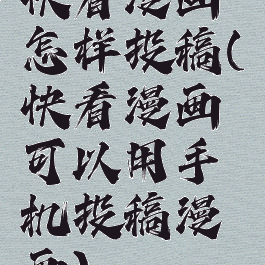 快看漫画
怎样投稿(
快看漫画
可以用手
机投稿漫
画)